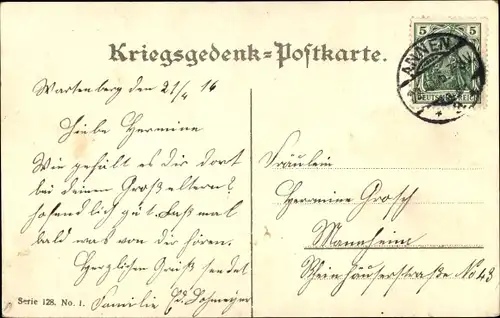 Kriegsgedenk=Postkarte.
5 5
DEUTSCHES REICH
ANNEN
Wartenberg den 21/4 16
Liebe Hermine
Wie gefält es dir dort
bei deinen Großeltern?
hofendlich gut. Laß mal
bald was von dir hören.
Herzlichen Gruß sendet
Familie Ed. Dohmeyer
Fräulein
Hermine Grosch
Mannheim
Rheinhäuserstraße No 43
Serie 128. No. 1.